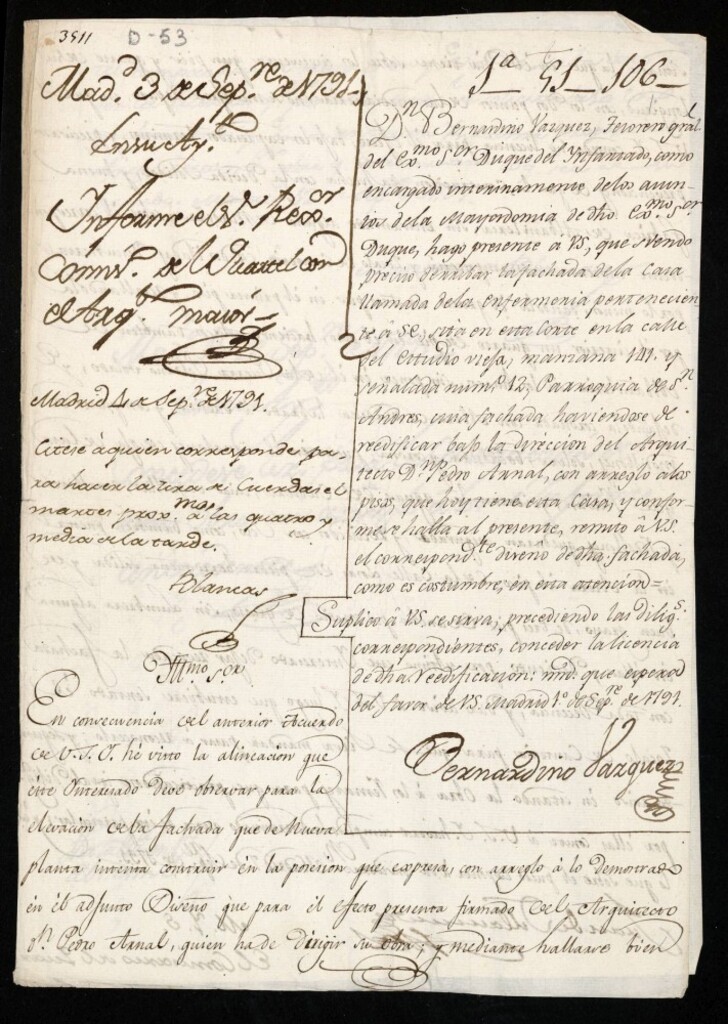 3511
D-53
Mad.d 3 de Sep.re de 1791,,
En su Ay.to
Informe el S.r Rex.or
Comis.o del Quartel con
el Arq.to maior
Madrid 4 de Sep.re de 1791.
Citese à quien corresponde pa-
ra hacer la tira de Cuerdas el
martes prox.mo à las quatro y
media de la tarde.
Blancas
1a 51-106-
D.n Bernardino Vazquez, Tesorero gral
del Ex.mo S.or Duque del Ynfantado, como
encargado interinamente de los asun-
tos de la Mayordomia de dho Ex.mo S.or
Duque, hago presente à VS, que siendo
preciso derribar la fachada de la Casa
llamada de la enfermeria pertenecien-
te a SE, sita en esta Corte en la calle
del estudio viejo, manzana 141. y
señalada num.o 12, Parroquia de S.n
Andres, cuia fachada haviendose de
reedificar bajo la direccion del Arqui-
tecto D.n Pedro Arnal, con arreglo a los
pisos, que hoy tiene esta Casa, y confor-
me se halla al presente, remito à VS.
el correspond.te diseño de dha fachada,
como es costumbre, en esta atencion=
Suplico à VS. se sirva, precediendo las dilig.s
correspondientes, conceder la licencia
de dha reedificacion: mrd. que espera
del favor de VS. Madrid 1.o de Sep.re de 1791.
Bernardino Vazquez
Yttmo S.or
En consecuencia del anterior Acuerdo
de V.S.Y. hé visto la alineacion que
este Ynteresado deve observar para la
elevacion de la fachada que de Nueva
planta intenta construir en la posesion que expresa, con arreglo à lo demostrado
en él adjunto Diseño que para él efecto presenta firmado del Arquitecto
D.n Pedro Arnal, quien ha de Dirigir su obra; y mediante hallarse bien